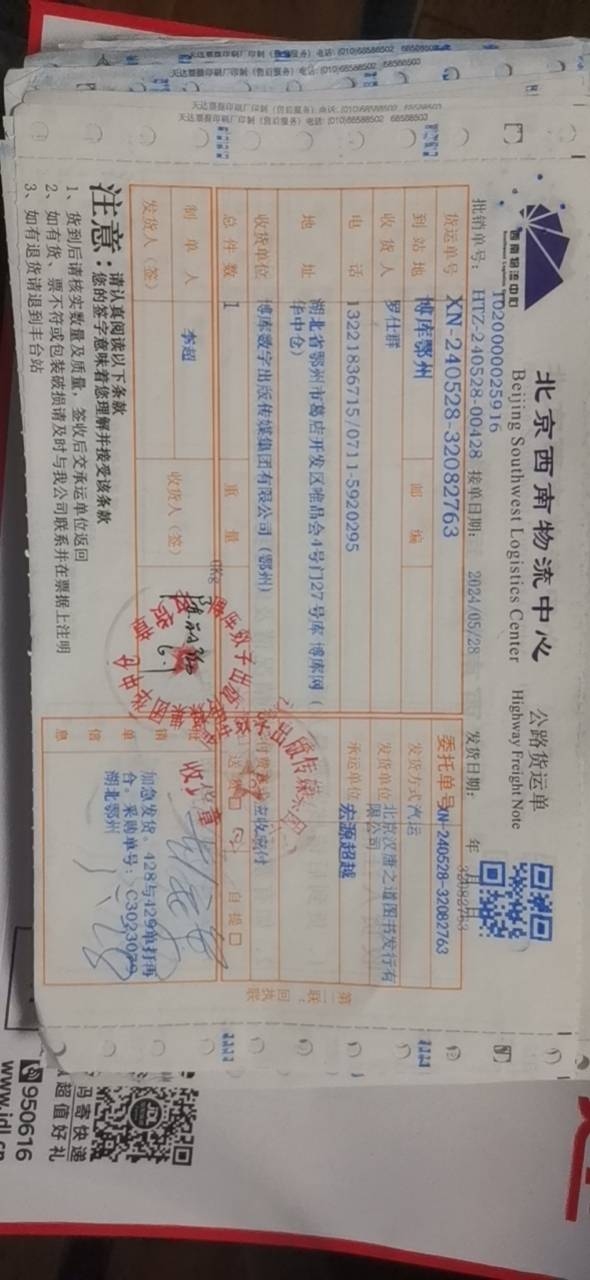 天达票据印刷厂印制（售后服务）电话：(010)68588502 68588503
西南物流中心
Southwest Logistics Center
北京西南物流中心
Beijing Southwest Logistics Center
公路货运单
Highway Freight Note
T0200000025916
批销单号：HTZ-240528-00428 接单日期：2024/05/28 发货日期： 年 月 日
货运单号 XN-240528-32082763 委托单号 XN-240528-32082763
32082763
到站地 博库鄂州 邮编 发货方式 汽运
收货人 罗仕群 发货单位 北京汉唐之道图书发行有限公司
电话 13221836715/0711-5920295 承运单位 宏源超越
地址 湖北省鄂州市葛店开发区唯品会4号门27号库 博库网（
华中仓）
收货单位 博库数字出版传媒集团有限公司（鄂州） 应收应付
总件数 1 重量 0Kg 送 自提 □
制单人 李超 收货人（签）
发货人（签）
批销单信息
加急发货。428与429单打再
合。采购单号：C3023079
湖北鄂州
收货章
注意：
请认真阅读以下条款
您的签字意味着您理解并接受该条款
1、货到后请核实数量及质量，签收后交承运单位返回
2、如有货、票不符或包装破损请及时与我公司联系并在票据上注明
3、如有退货请退到丰台站
第二联：回执联
950616
超值好礼
www.jdl.cn